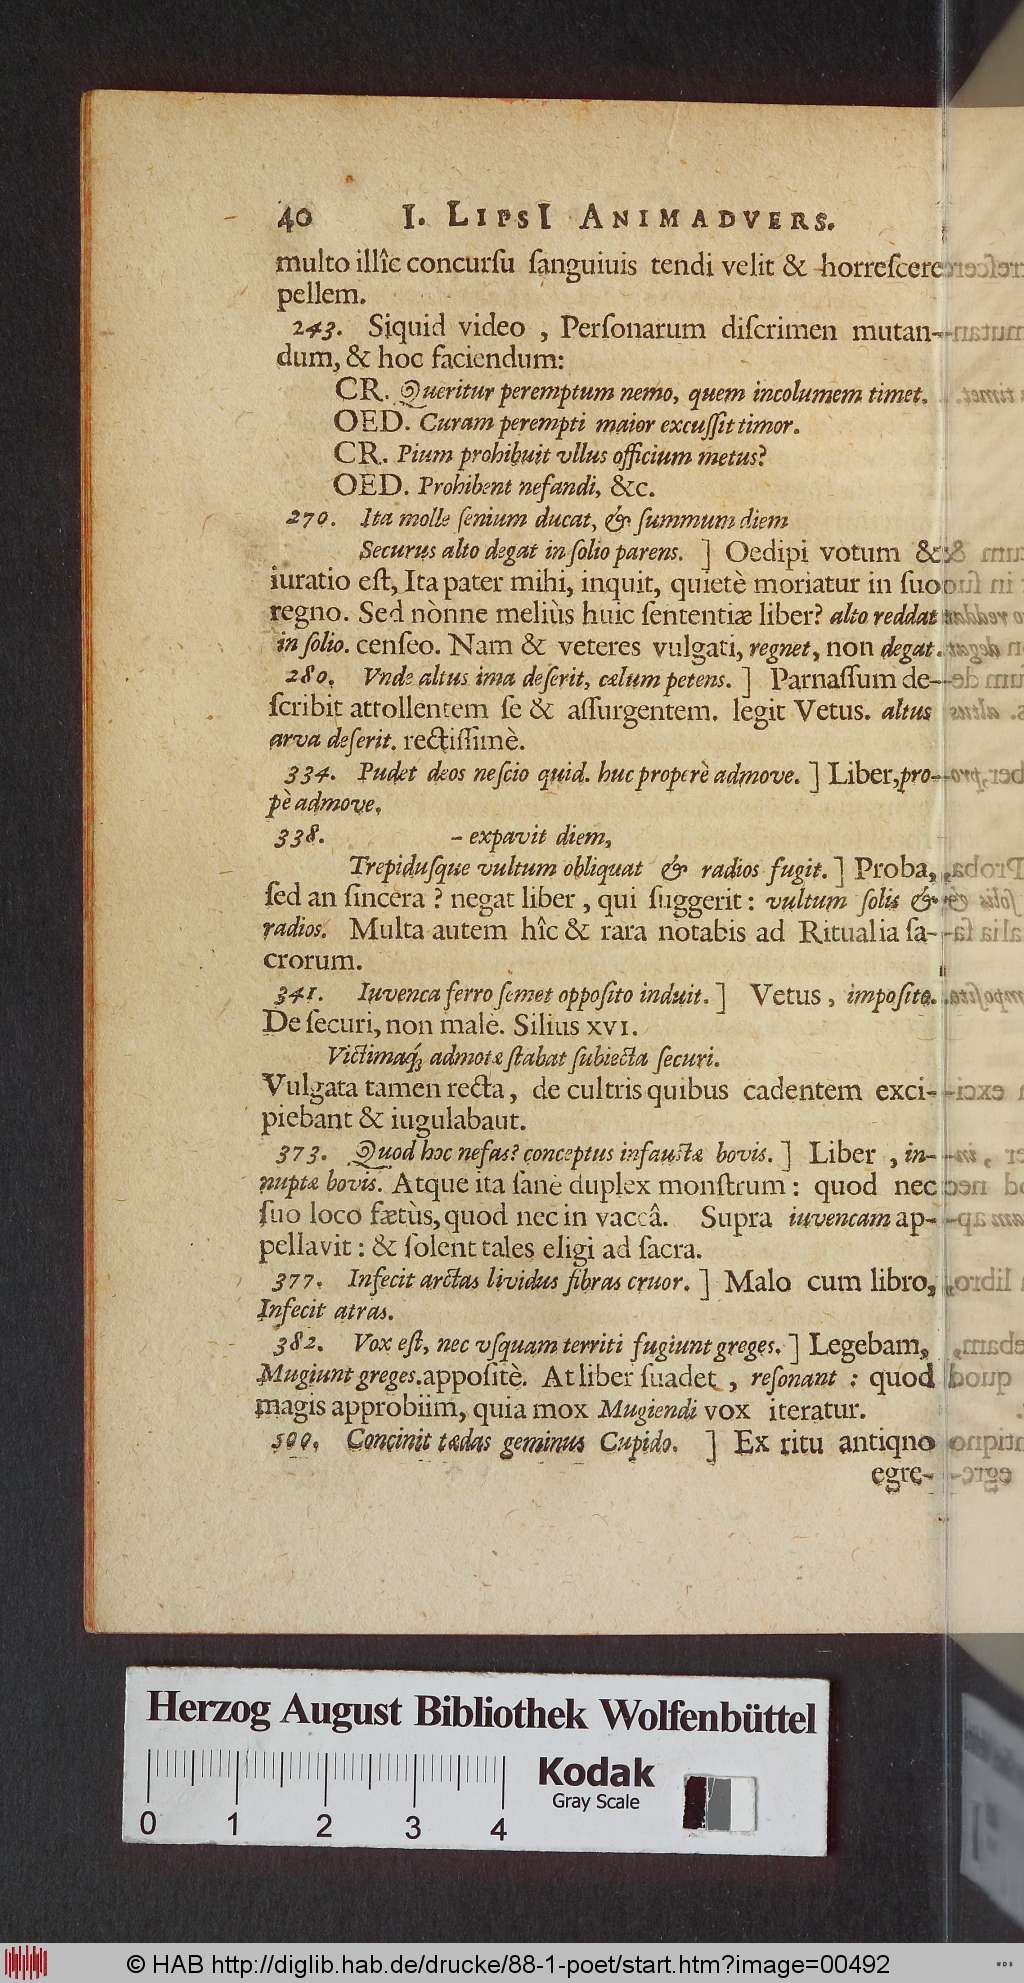 40 I. LIPSI ANIMADVERS.
multo illîc concurſu ſanguiuis tendi velit & horreſcere
pellem.
243. Siquid video , Perſonarum diſcrimen mutan-
dum, & hoc faciendum:
CR. Queritur peremptum nemo, quem incolumem timet.
OED. Curam perempti maior excuſſit timor.
CR. Pium prohibuit vllus officium metus?
OED. Prohibent nefandi, &c.
270. Ita molle ſenium ducat, & ſummum diem
Securus alto degat in ſolio parens. ] Oedipi votum &
iuratio eſt, Ita pater mihi, inquit, quietè moriatur in ſuo
regno. Sed nònne meliùs huic ſententiæ liber? alto reddat
in ſolio. cenſeo. Nam & veteres vulgati, regnet, non degat.
280. Vnde altus ima deſerit, cælum petens. ] Parnaſſum de-
ſcribit attollentem ſe & aſſurgentem. legit Vetus. altus
arva deſerit. rectiſſimè.
334. Pudet deos neſcio quid. huc properè admove. ] Liber, pro-
pè admove.
338. – expavit diem,
Trepiduſque vultum obliquat & radios fugit. ] Proba,
ſed an ſincera ? negat liber , qui ſuggerit : vultum ſolis &
radios. Multa autem hîc & rara notabis ad Ritualia ſa-
crorum.
341. Iuvenca ferro ſemet oppoſito induit. ] Vetus , impoſito.
De ſecuri, non malè. Silius XVI.
Victimaq́; admotæ ſtabat ſubiecta ſecuri.
Vulgata tamen recta, de cultris quibus cadentem exci-
piebant & iugulabaut.
373. Quod hoc nefas? conceptus infauſtæ bovis. ] Liber , in-
nuptæ bovis. Atque ita ſanè duplex monſtrum : quod nec
ſuo loco fætùs, quod nec in vaccâ. Supra iuvencam ap-
pellavit : & ſolent tales eligi ad ſacra.
377. Infecit arctas lividus fibras cruor. ] Malo cum libro,
Infecit atras.
382. Vox eſt, nec vſquam territi fugiunt greges. ] Legebam,
Mugiunt greges. appoſitè. At liber ſuadet , reſonant : quod
magis approbiim, quia mox Mugiendi vox iteratur.
500. Concinit tædas geminus Cupido. ] Ex ritu antiqno
egre-
Herzog August Bibliothek Wolfenbüttel
Kodak
Gray Scale
0 1 2 3 4
© HAB http://diglib.hab.de/drucke/88-1-poet/start.htm?image=00492